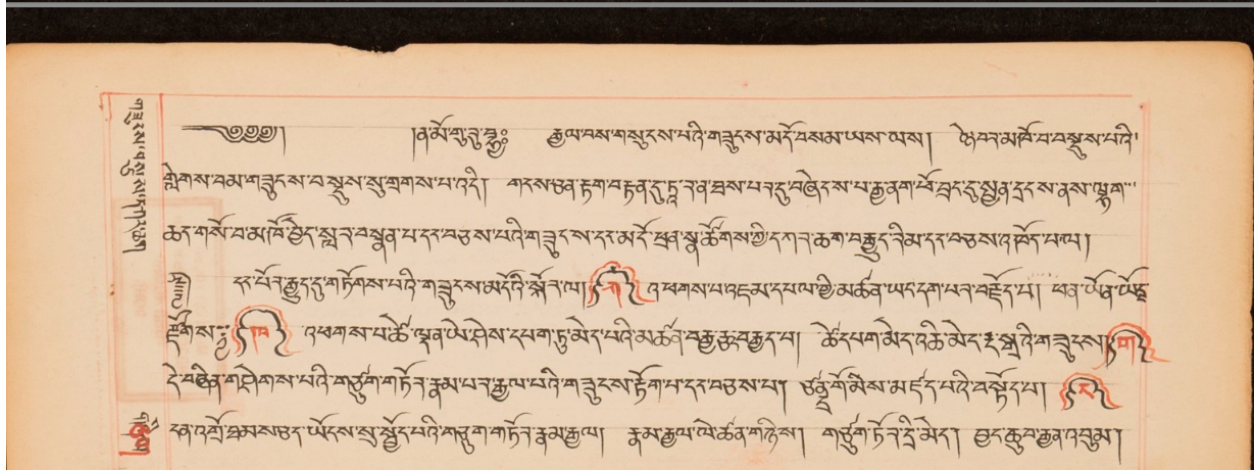 ༄༅༅། །ན་མོ་གུ་རུ་བྷྱཿ རྒྱལ་བས་གསུངས་པའི་གཟུངས་མདོ་བསམ་ཡས་ལས། ཉེ་བར་མཁོ་བ་བསྡུས་པའི་
གླེགས་བམ་གཟུངས་བསྡུས་སུ་གྲགས་པ་འདི། གངས་ཅན་རྟག་བརྟན་དུ་ཏཱ་ར་ན་ཐས་པར་དུ་བཞེངས་པ་རྒྱནག་ཕོ་བྲང་དུ་སྤྱན་དྲངས་ནས་ལྷག་
ཆད་གསོ་བ་མཁོ་བྱེད་སླར་བསྣན་པ་དང་བཅས་པའི་གཟུངས་དང་མདོ་ཕྲན་སྣ་ཚོགས་ཀྱི་དཀར་ཆག་བརྒྱུད་རིམ་དང་བཅས་འཁོད་པ་ལ།
དང་པོར་རྒྱུད་དུ་གཏོགས་པའི་གཟུངས་མདོའི་སྐོར་ལ། ཀ འཕགས་པ་འཇམ་དཔལ་གྱི་མཚན་ཡང་དག་པར་བརྗོད་པ། ཕན་ཡོན་ཡོངས་
རྫོགས་ ཁ འཕགས་པ་ཚེ་ལྡན་ཡེ་ཤེས་དཔག་ཏུ་མེད་པའི་མཚན་བརྒྱ་རྩ་བརྒྱད་པ། ཚེ་དཔག་མེད་འཆི་མེད་རྔ་སྒྲའི་གཟུངས། ག
དེ་བཞིན་གཤེགས་པའི་གཙུག་གཏོར་རྣམ་པར་རྒྱལ་བའི་གཟུངས་རྟོག་པ་དང་བཅས་པ། ཙནྡྲ་གོ་མིས་མཛད་པའི་བསྟོད་པ། ང
ངན་འགྲོ་ཐམས་ཅད་ཡོངས་སུ་སྦྱོང་བའི་གཙུག་གཏོར་རྣམ་རྒྱལ། རྣམ་རྒྱལ་ལེ་ཚན་གཉིས། གཙུག་ཏོར་དྲི་མེད། བྱང་ཆུབ་རྒྱན་འབུམ།